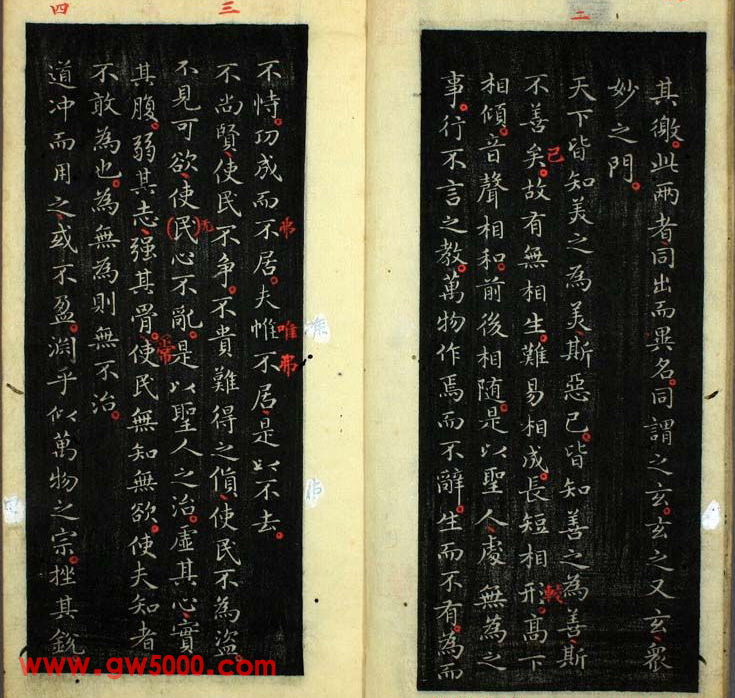 二
其徼。此兩者、同出而異名。同謂之玄。玄之又玄、衆
妙之門。
天下皆知美之為美、斯惡已。皆知善之為善、斯
不善矣。故有無相生。難易相成。長短相形。高下
已
較
相傾。音聲相和。前後相随。是以聖人、處無為之
事。行不言之教。萬物作焉而不辭。生而不有。為而
三
不恃。功成而不居。夫惟不居、是以不去。
弗
唯
弗
不尚賢、使民不争。不貴難得之貨、使民不為盗。
不見可欲、使(民)心不亂。是以聖人之治。虛其心、實
无
其腹。弱其志、强其骨。使民無知無欲。使夫知者
常
不敢為也。為無為則無不治。
四
道冲而用之、或不盈。淵乎似萬物之宗。挫其銳
www.gw5000.com